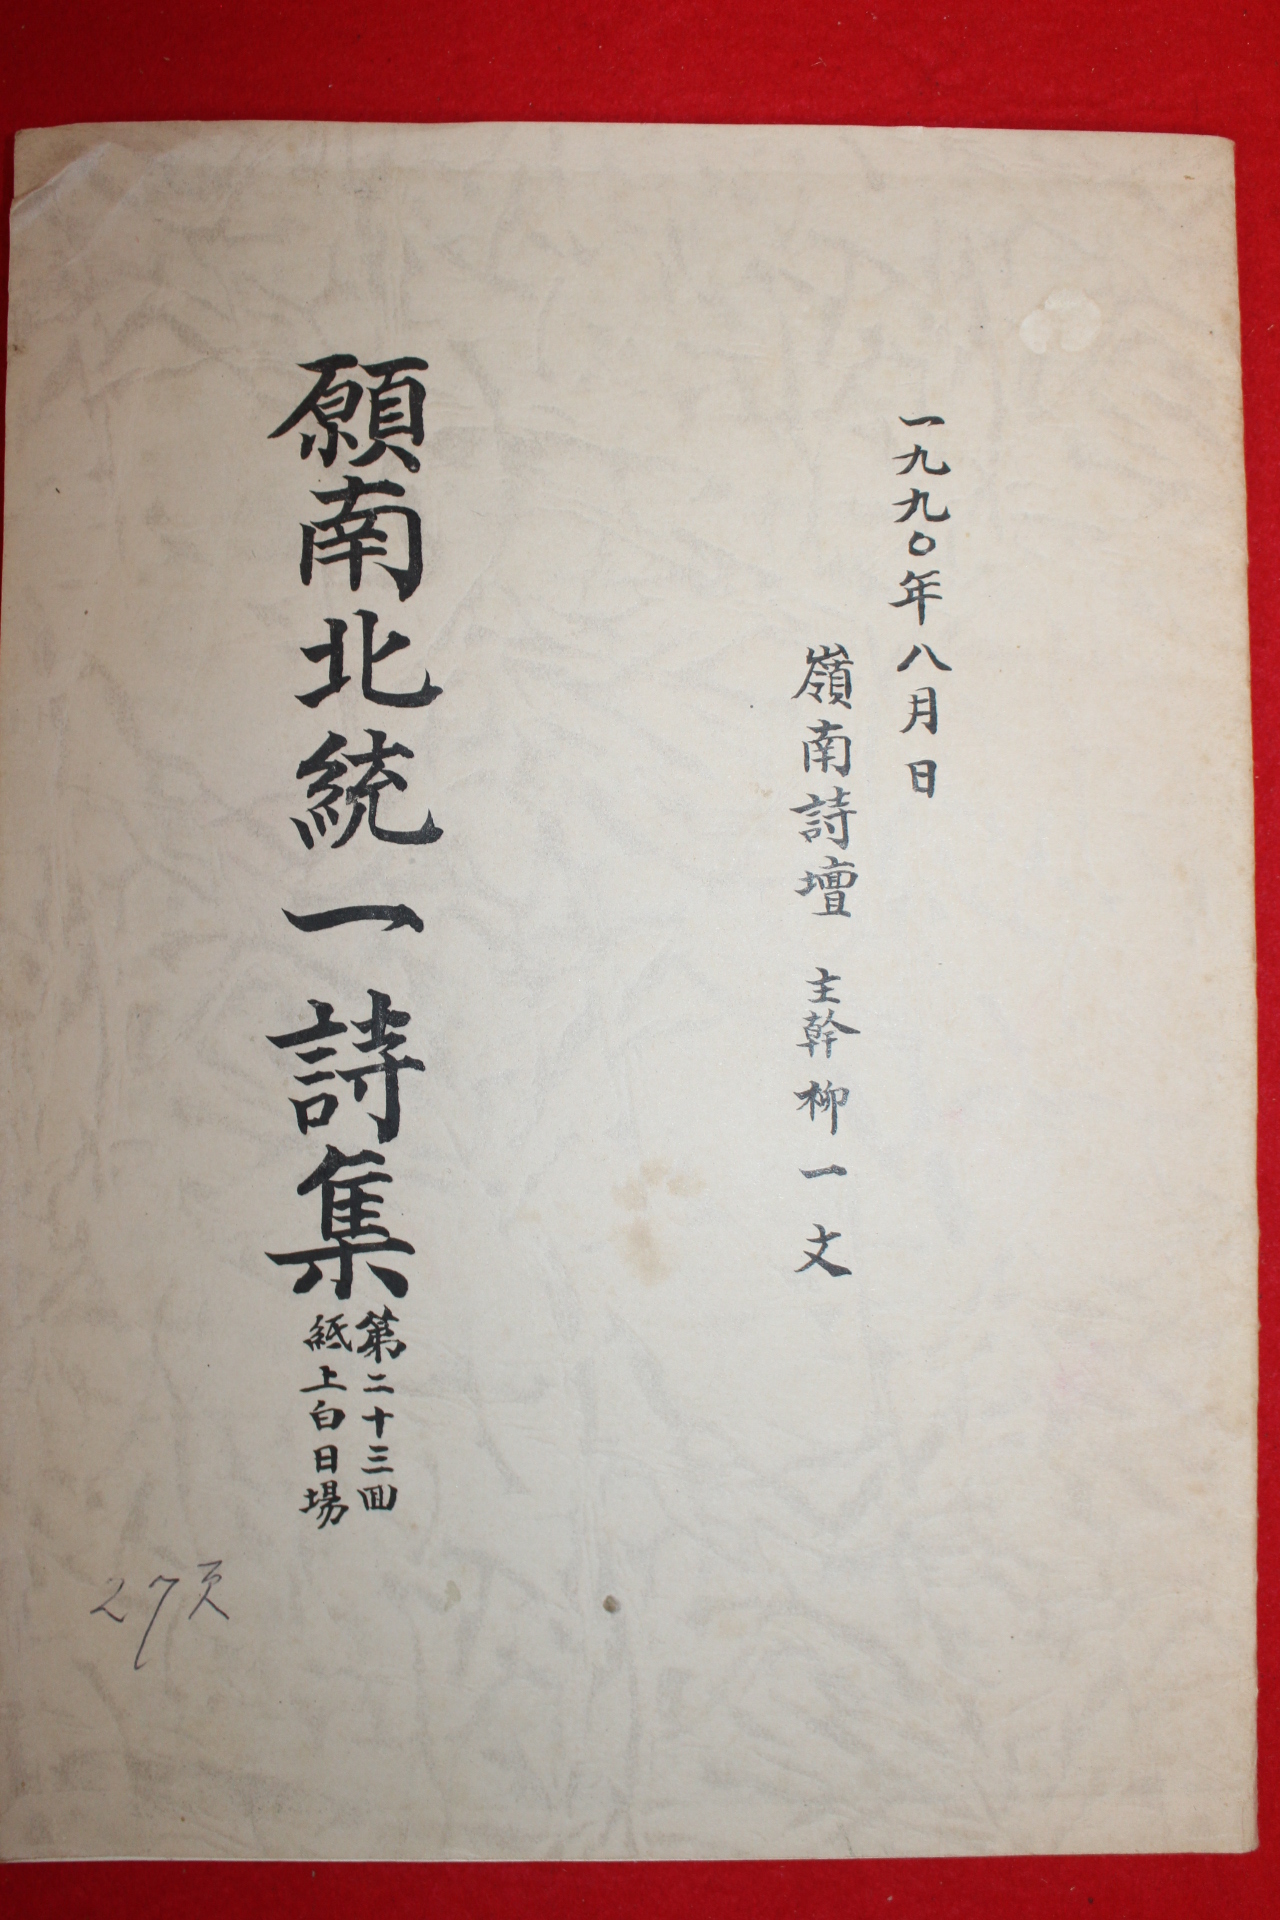 一九九〇年八月日
嶺南詩壇 主幹 柳一文
願南北統一詩集
第二十三回
紙上白日場
27页